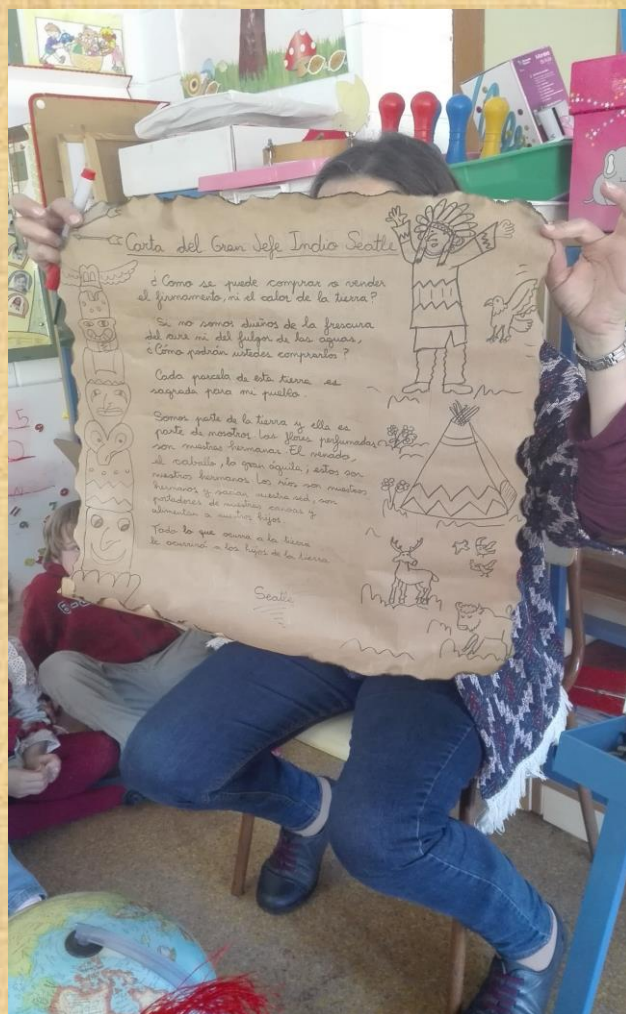 Carta del Gran Jefe Indio Seatle
¿Como se puede comprar o vender
el firmamento, ni el calor de la tierra?
Si no somos dueños de la frescura
del aire ni del fulgor de las aguas,
¿Cómo podrán ustedes comprarlos?
Cada parcela de esta tierra es
sagrada para mi pueblo.
Somos parte de la tierra y ella es
parte de nosotros. Las flores perfumadas
son nuestras hermanas. El venado,
el caballo, la gran águila; estos son
nuestros hermanos. Los ríos son nuestros
hermanos y sacian nuestra sed, son
portadores de nuestras canoas y
alimentan a nuestros hijos.
Todo lo que ocurra a la tierra
le ocurrirá a los hijos de la tierra.
Seatle